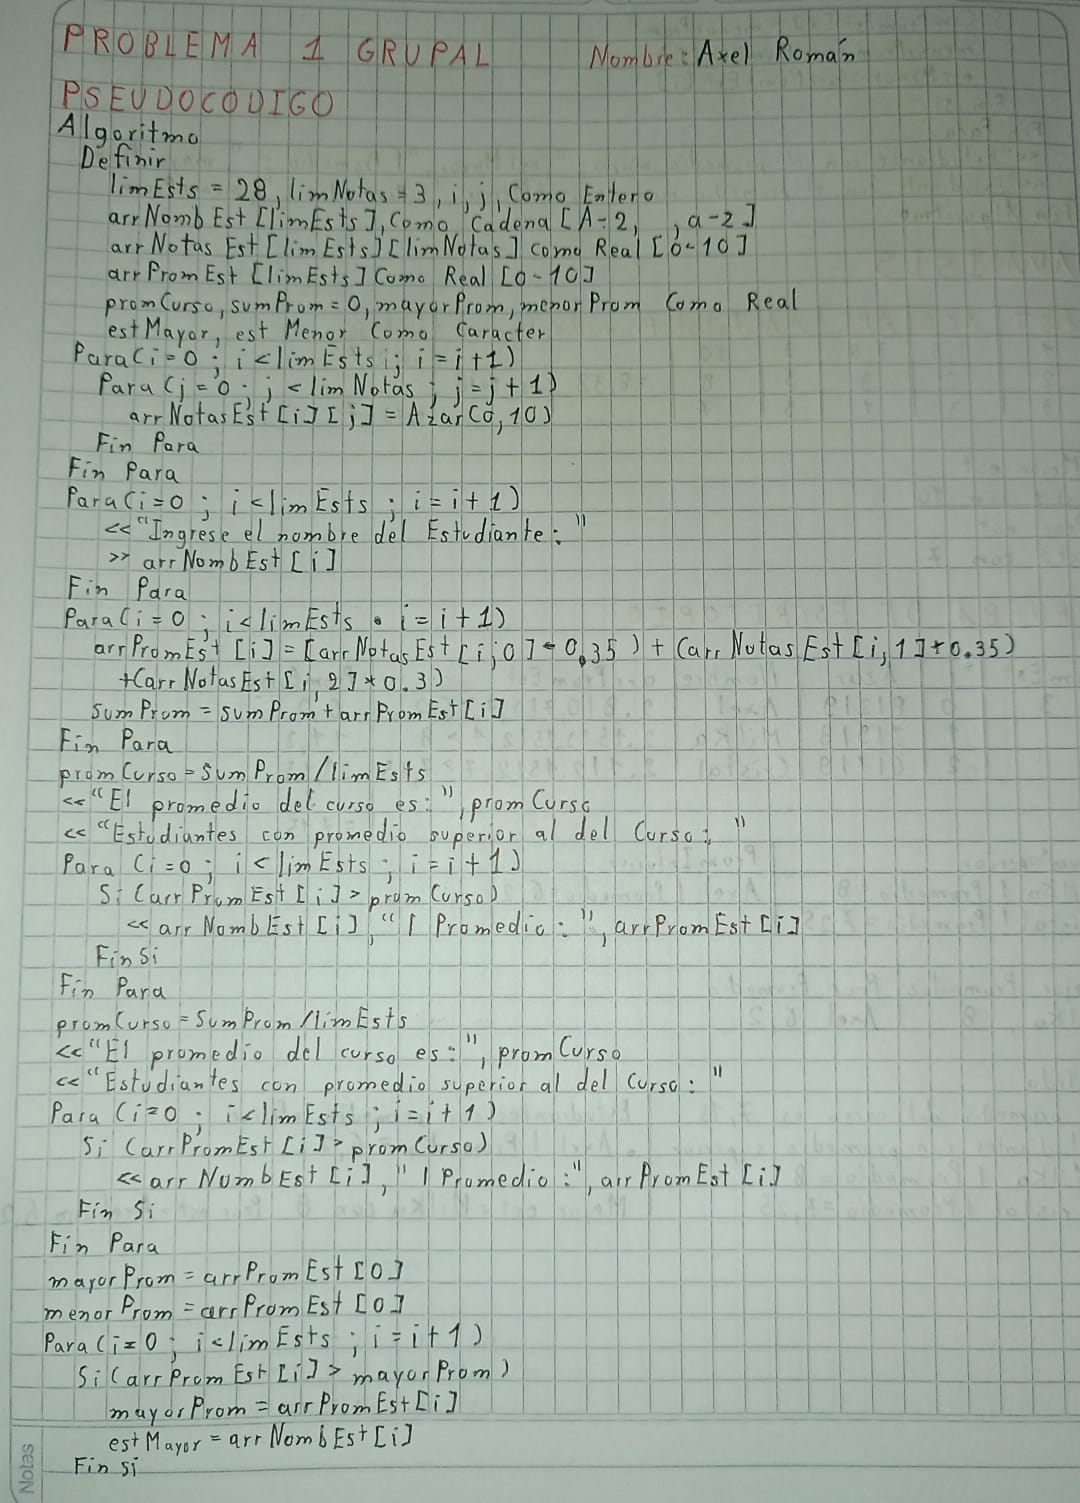 PROBLEMA 1 GRUPAL Nombre: Axel Román
PSEUDOCODIGO
Algoritmo
Definir
limEsts = 28, limNotas = 3, i, j, Como Entero
arrNombEst [limEsts], Como Cadena [A-2, , a-2]
arrNotas Est [limEsts][limNotas] como Real [0-10]
arrPromEst [limEsts] Como Real [0-10]
promCurso, sumProm = 0, mayorProm, menorProm Como Real
estMayor, est Menor Como Caracter
Para (i = 0 ; i < limEsts ; i = i + 1)
Para (j = 0 ; j < lim Notas ; j = j + 1)
arrNotasEst [i] [j] = Azar (0, 10)
Fin Para
Fin Para
Para (i = 0 ; i < limEsts ; i = i + 1)
<< "Ingrese el nombre del Estudiante: "
>> arrNombEst [i]
Fin Para
Para (i = 0 ; i < limEsts ; i = i + 1)
arrPromEst [i] = [arrNotasEst [i, 0] * 0.35) + (arrNotasEst [i, 1] * 0.35)
+ (arrNotasEst [i, 2] * 0.3)
sumProm = sumProm + arrPromEst [i]
Fin Para
promCurso = SumProm / limEsts
<< "El promedio del curso es: ", promCurso
<< "Estudiantes con promedio superior al del Curso: "
Para (i = 0 ; i < limEsts ; i = i + 1)
Si (arrPromEst [i] > promCurso)
<< arrNombEst [i], " | Promedio : ", arrPromEst [i]
Fin Si
Fin Para
promCurso = SumProm / limEsts
<< "El promedio del curso es: ", promCurso
<< "Estudiantes con promedio superior al del Curso: "
Para (i = 0 ; i < limEsts ; i = i + 1)
Si (arrPromEst [i] > promCurso)
<< arrNombEst [i], " | Promedio : ", arrPromEst [i]
Fin Si
Fin Para
mayorProm = arrPromEst [0]
menorProm = arrPromEst [0]
Para (i = 0 ; i < limEsts ; i = i + 1)
Si (arrPromEst [i] > mayorProm)
mayorProm = arrPromEst [i]
estMayor = arrNombEst [i]
Fin Si
Notas